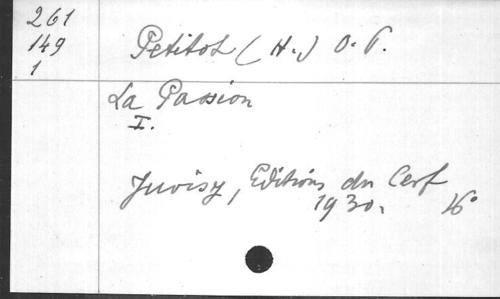 261
149
1
Petitot (H.) O. P.
La Passion
I.
Juvisy, Editions du Cerf
1930. 16°